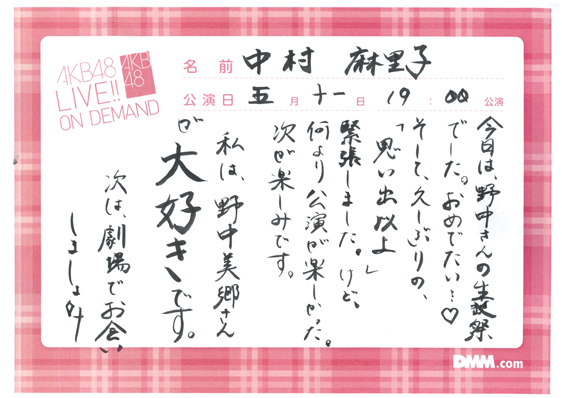 AKB48
LIVE!!
ON DEMAND
AKB
48
名前 中村 麻里子
公演日 五月十一日 19:00 公演
今日は、野中さんの生誕祭
でーた。おめでたい…♡
そして、久しぶりの、
「思い出以上」
緊張しました。けど、
何より公演が楽しかった。
次が楽しみです。
私は、野中美郷さん
が大好きです。
次は、劇場でお会い
しましょみー
DMM.com